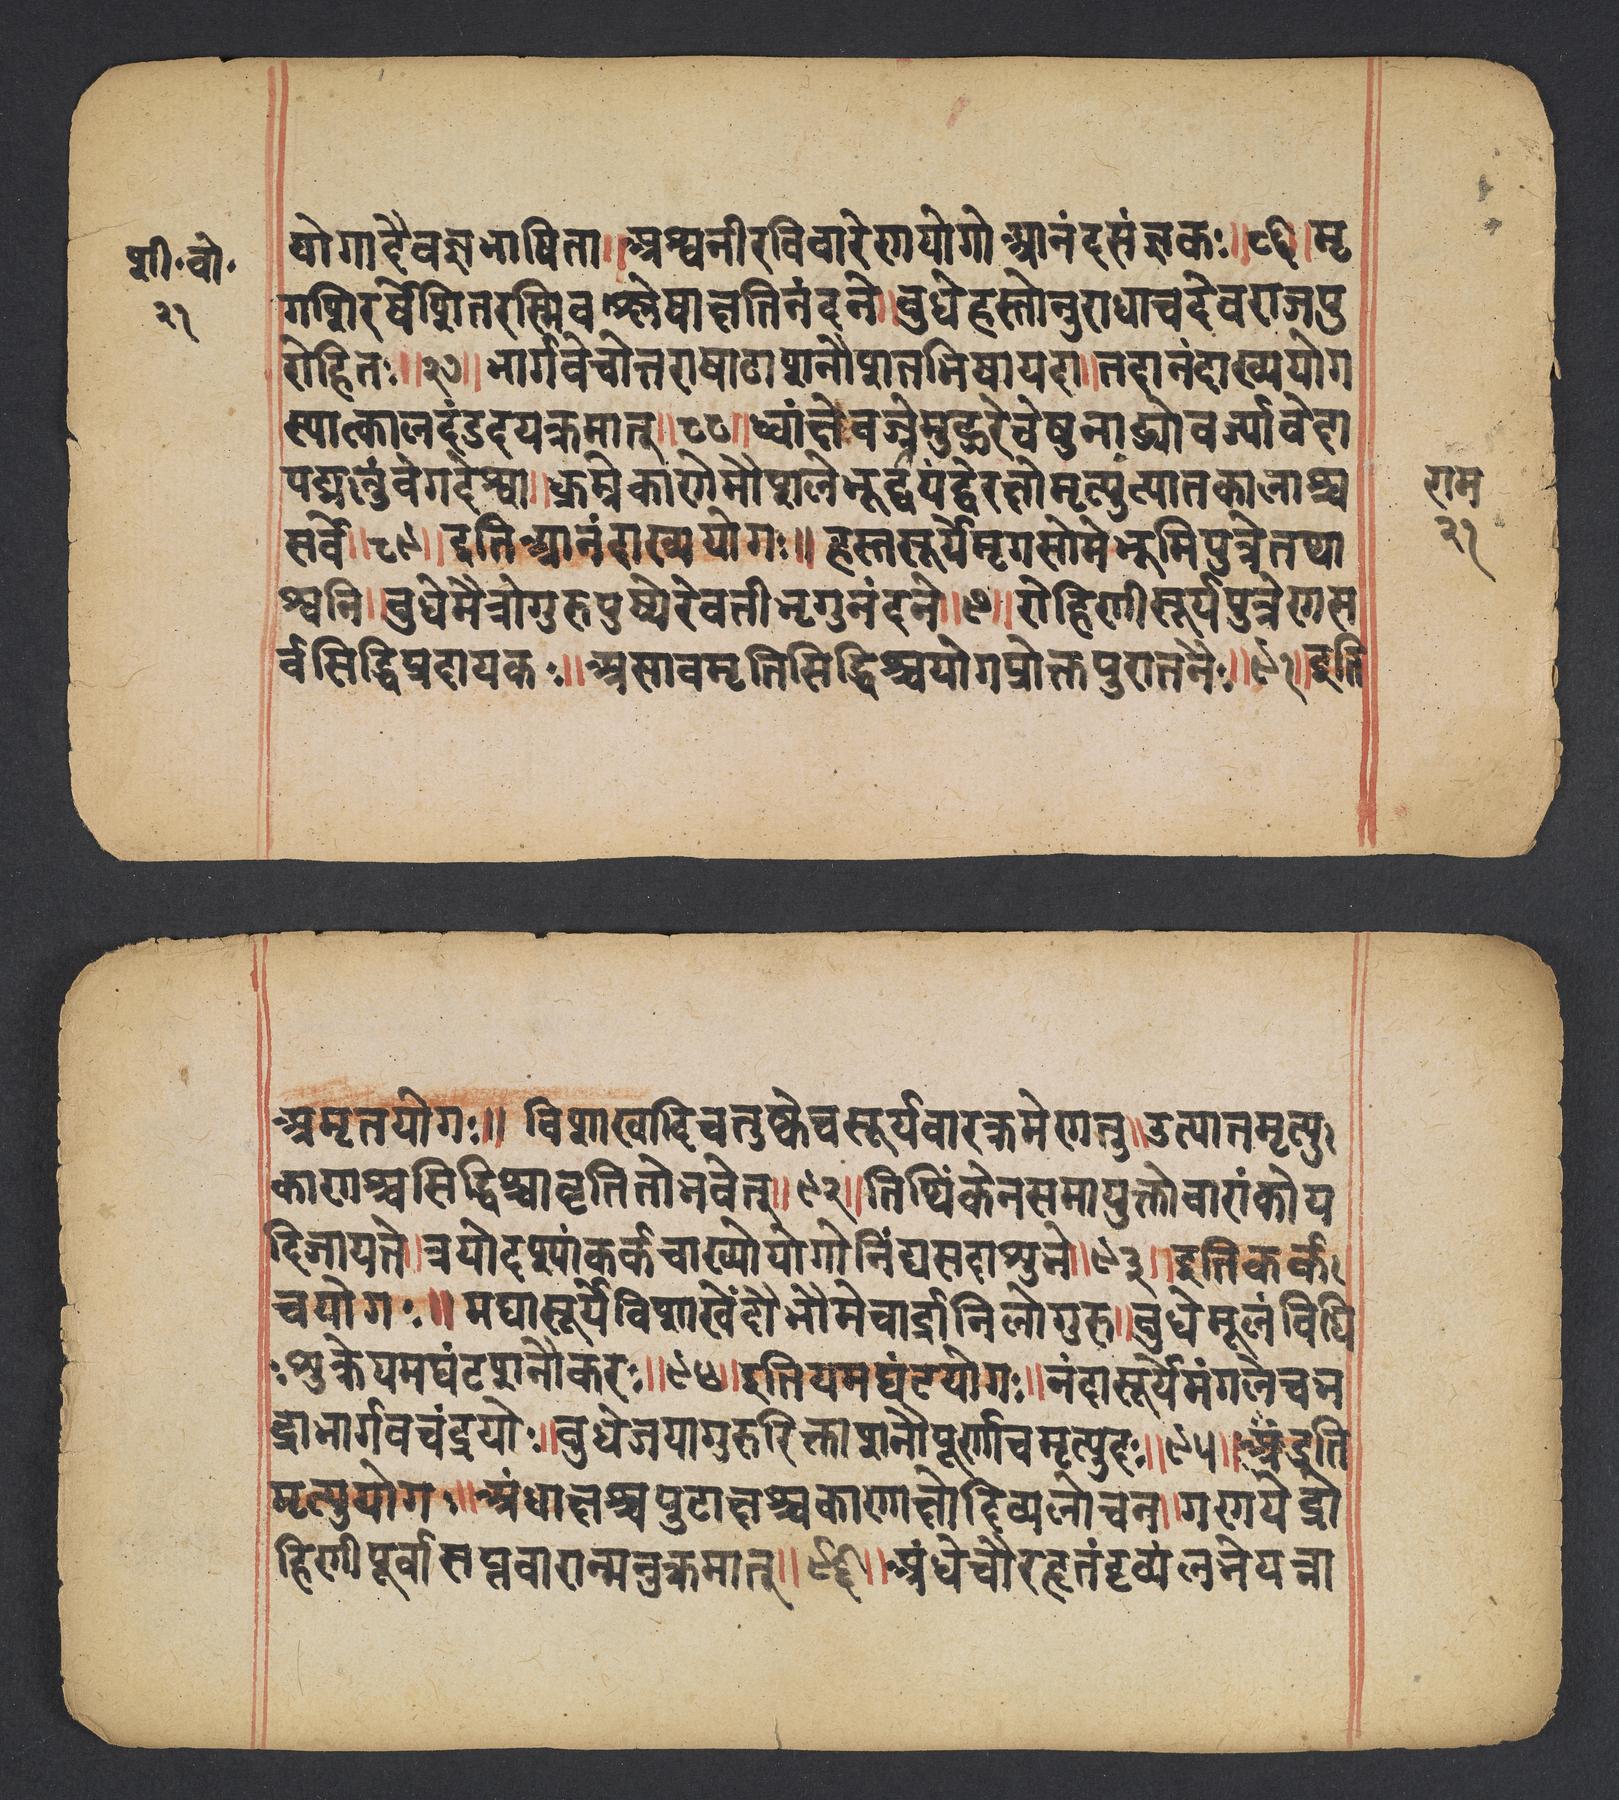 शी॰वो॰
२१
योगादैवज्ञभाषिता॥अश्वनीरविवारेणयोगोआनंदसंज्ञकः॥८६॥मृ
गशिरर्षेशितरस्मिवश्लेषाक्षतिनंदने॥बुधेहस्तोनुराधाचदेवराजपु
रोहितः॥२७॥भार्गवेचोत्तराषाढाशनौशतभिषायदा॥तदानंदाख्ययोग
स्यात्कालदंडदयक्रमात्॥८८॥ध्वांक्षेवज्रेमुद्गरेवेषुनाड्योवर्ज्यावेदा
पद्म
कालाश्च
सर्वे॥८९॥इतिआनंदाख्ययोगः॥हस्तसूर्येमृगसोमेभूमिपुत्रेतथा
श्वनि॥बुधेमैत्रोगुरुपुष्येरेवतीभृगुनंदने॥९॥रोहिणीसूर्यपुत्रेणस
र्वसिद्धिप्रदायकः॥असावमृतिसिद्धिश्चयोगप्रोक्तपुरातनैः॥९१॥इति
राम
२१
अमृतयोगः॥विशाखादिचतुष्केचसूर्यवारक्रमेणतु॥उत्पातमृत्यु
काणाश्चसिद्धिश्चावृतितोभवेत्॥९२॥तिथिंकेनसमायुक्तोवारांकोय
दिजायते॥त्रयोदशंपांकर्कचाख्योयोगोनिंद्यसदाशुने॥९३॥इतिकर्क
चयोगः॥मघासूर्येविशाखेंदौभौमेचार्द्रानिलोगुरु॥बुधेमूलंविधि
शुक्रेयमघंटशनौकरः॥९४॥इतियमघंटयोगः॥नंदासूर्येमंगलेचभ
द्राभार्गवचंद्रयोः॥बुधेजयागुरुरिक्ताशनौपूर्णाचमृत्युदः॥९५॥इति
मृत्युयोग॥अंधाक्षश्चपुटाक्षश्चकाणाक्षोदिव्यलोचन॥गणयेद्रो
हिणीपूर्वासप्तवारान्मनुक्रमात्॥९६॥अंधेचौरहृतंदृव्यंलभेयत्ना